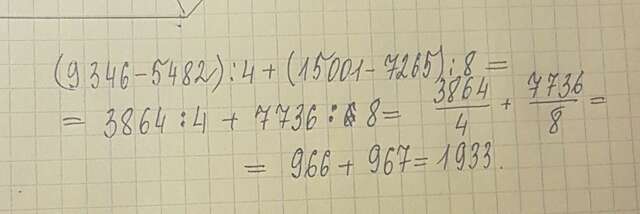 (9346-5482):4+(15001-7265):8=
= 3864:4 + 7736:8= 3864/4 + 7736/8 =
= 966+967=1933.